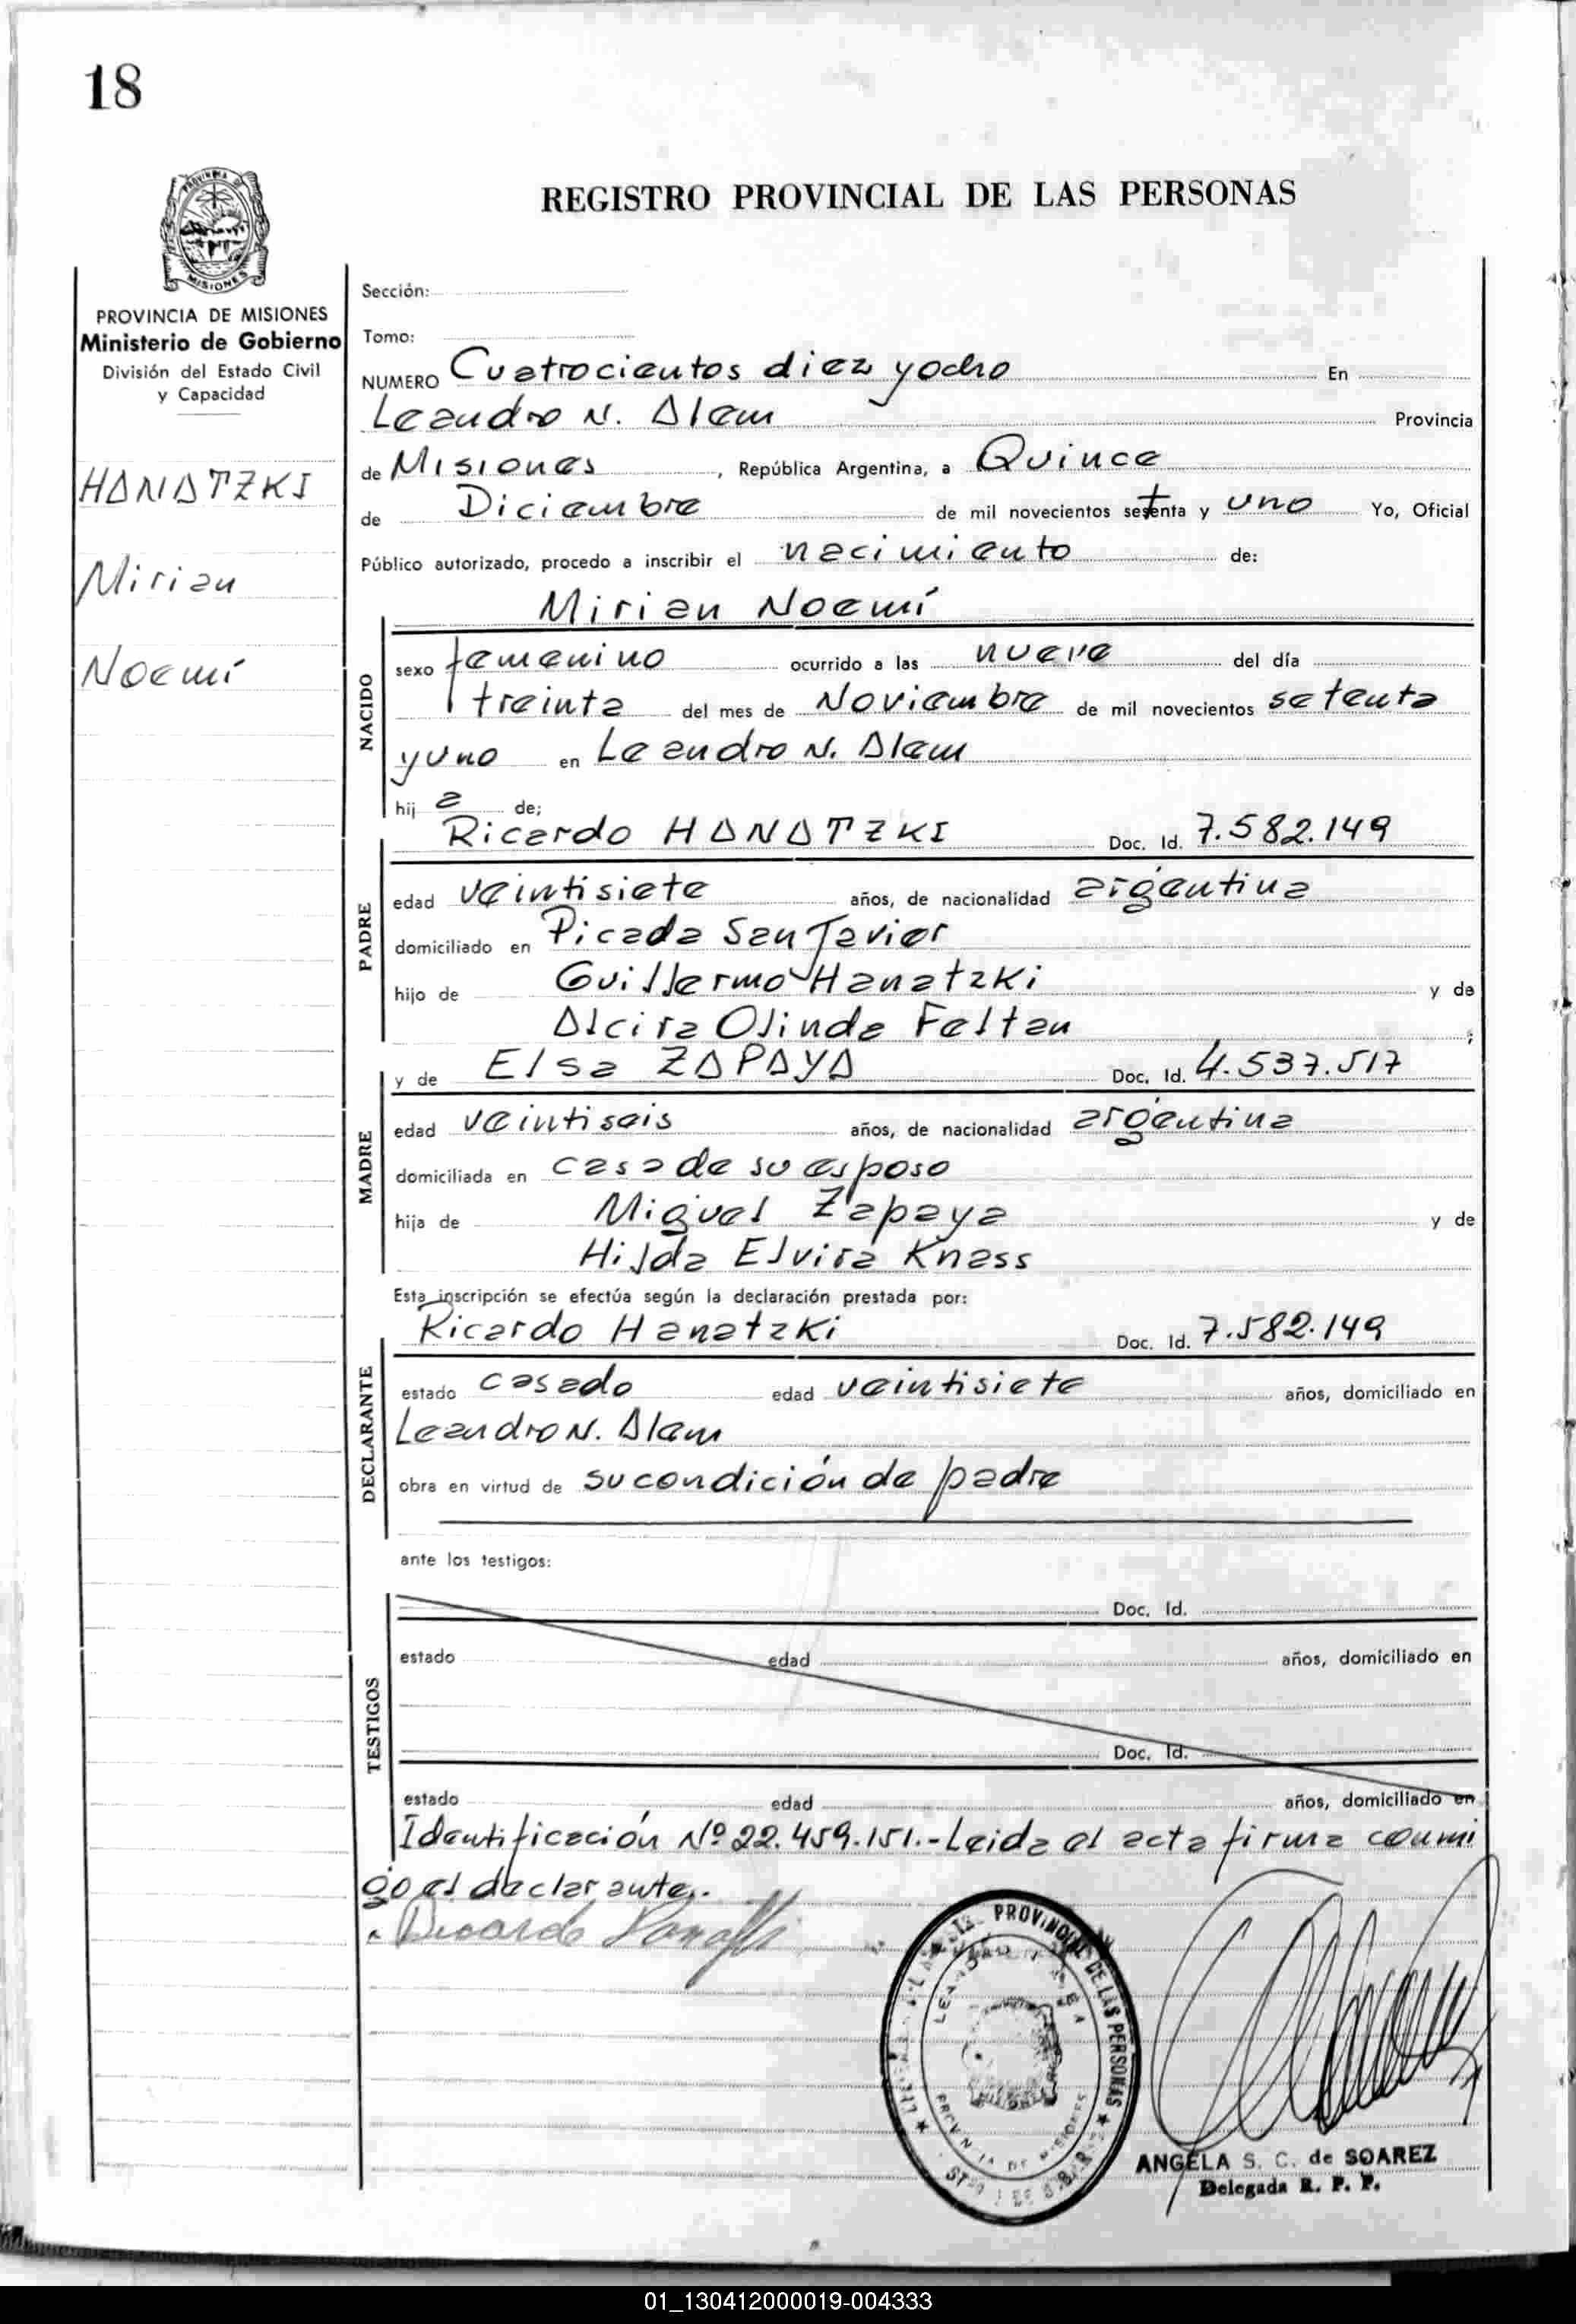 18
REGISTRO PROVINCIAL DE LAS PERSONAS
PROVINCIA DE MISIONES
Ministerio de Gobierno
División del Estado Civil
y Capacidad
HANATZKI
Mirian
Noemí
Sección:
Tomo:
NUMERO Cuatrocientos diez y ocho En
Leandro N. Alem Provincia
de Misiones, República Argentina, a Quince
de Diciembre de mil novecientos setenta y uno Yo, Oficial
Público autorizado, procedo a inscribir el nacimiento de:
Mirian Noemí
NACIDO
sexo femenino ocurrido a las nueve del día
treinta del mes de Noviembre de mil novecientos setenta
y uno en Leandro N. Alem
hij a de;
Ricardo HANATZKI Doc. Id. 7.582.149
PADRE
edad veintisiete años, de nacionalidad argentina
domiciliado en Picada San Javier
hijo de Guillermo Hanatzki y de
Alcira Olinda Feltan ;
y de Elsa ZAPAYA Doc. Id. 4.537.517
MADRE
edad veintiseis años, de nacionalidad argentina
domiciliada en casa de su esposo
hija de Miguel Zapaya y de
Hilda Elvira Knass
Esta inscripción se efectúa según la declaración prestada por:
Ricardo Hanatzki Doc. Id. 7.582.149
DECLARANTE
estado casado edad veintisiete años, domiciliado en
Leandro N. Alem
obra en virtud de su condición de padre
ante los testigos:
TESTIGOS
Doc. Id.
estado edad años, domiciliado en
Doc. Id.
estado edad años, domiciliado en
Identificación Nº 22.459.151.- Leida el acta firma conmi
go el declarante.-
PROVINCIAL DE LAS PERSONAS
ANGELA S. C. de SOAREZ
Delegada R. P. P.
01_130412000019-004333